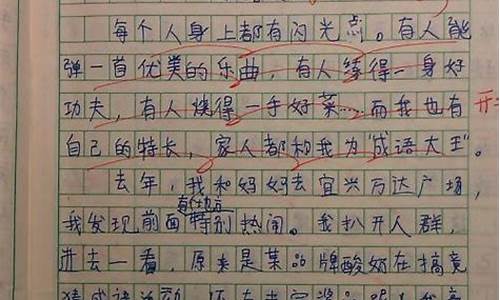 每个人身上都有闪光点。有人能
弹一首优美的乐曲，有人练得一身好
功夫，有人烧得一手好菜……而我也有 开
自己的特长，家人都称我为“成语大王”。
去年，我和妈妈去宜兴万达广场，
我发现前面有个地方特别热闹。我扒开人群，
进去一看，原来是某品牌酸奶在搞竞
猜成语活动，